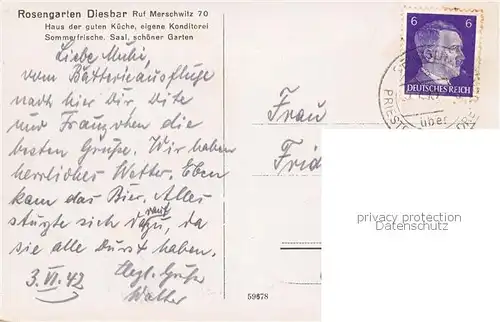 Rosengarten Diesbar Ruf Merschwitz 70
Haus der guten Küche, eigene Konditorei
Sommerfrische. Saal, schöner Garten
Liebe Muhi,
vom Batterieausfluge
nach hier Dir, Dite
und Franzchen die
besten Grüße. Wir haben
herrliches Wetter. Eben
kam das Bier. Alles
stürzte sich drauf zu, da
sie alle Durst haben.
3. VI. 42 Hzgl. Grüße
Walter
59678
Frau
Frid
6 6
DEUTSCHES REICH
über
PRIEST
privacy protection
Datenschutz